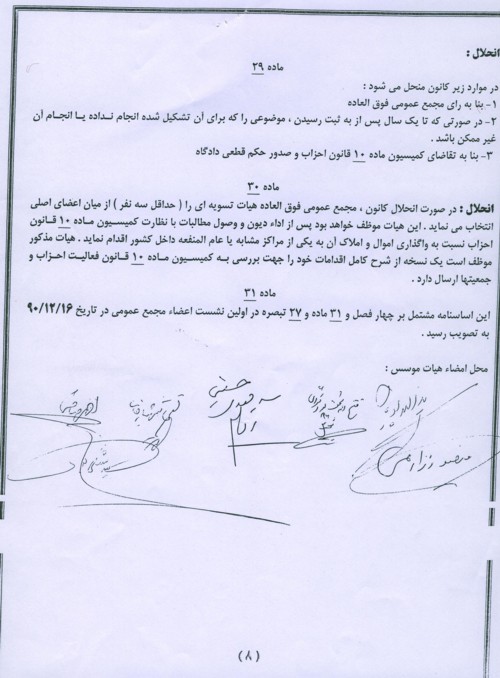 انحلال :
ماده ۲۹
در موارد زیر کانون منحل می شود :
۱- بنا به رای مجمع عمومی فوق العاده
۲- در صورتی که تا یک سال پس از به ثبت رسیدن ، موضوعی را که برای آن تشکیل شده انجام نداده یـا انجـام آن
غیر ممکن باشد .
۳- بنا به تقاضای کمیسیون ماده ۱۰ قانون احزاب و صدور حکم قطعی دادگاه
ماده ۳۰
انحلال : در صورت انحلال کانون ، مجمع عمومی فوق العاده هیات تسویه ای را ( حداقل سه نفر ) از میان اعضای اصلی
انتخاب می نماید . این هیات موظف خواهد بود پس از اداء دیون و وصول مطالبات با نظارت کمیسیون مـاده ۱۰ قـانون
احزاب نسبت به واگذاری اموال و املاک آن به یکی از مراکز مشابه یا عام المنفعه داخل کشور اقدام نماید . هیات مذکور
موظف است یک نسخه از شرح کامل اقدامات خود را جهت بررسی بـه کمیسیون مـاده ۱۰ قـانون فعالیـت احـزاب و
جمعیتها ارسال دارد .
ماده ۳۱
این اساسنامه مشتمل بر چهار فصل و ۳۱ ماده و ۲۷ تبصره در اولین نشست اعضاء مجمع عمومی در تاریخ ۹۰/۱۲/۱۶
به تصویب رسید .
محل امضاء هیات موسس :
(۸)